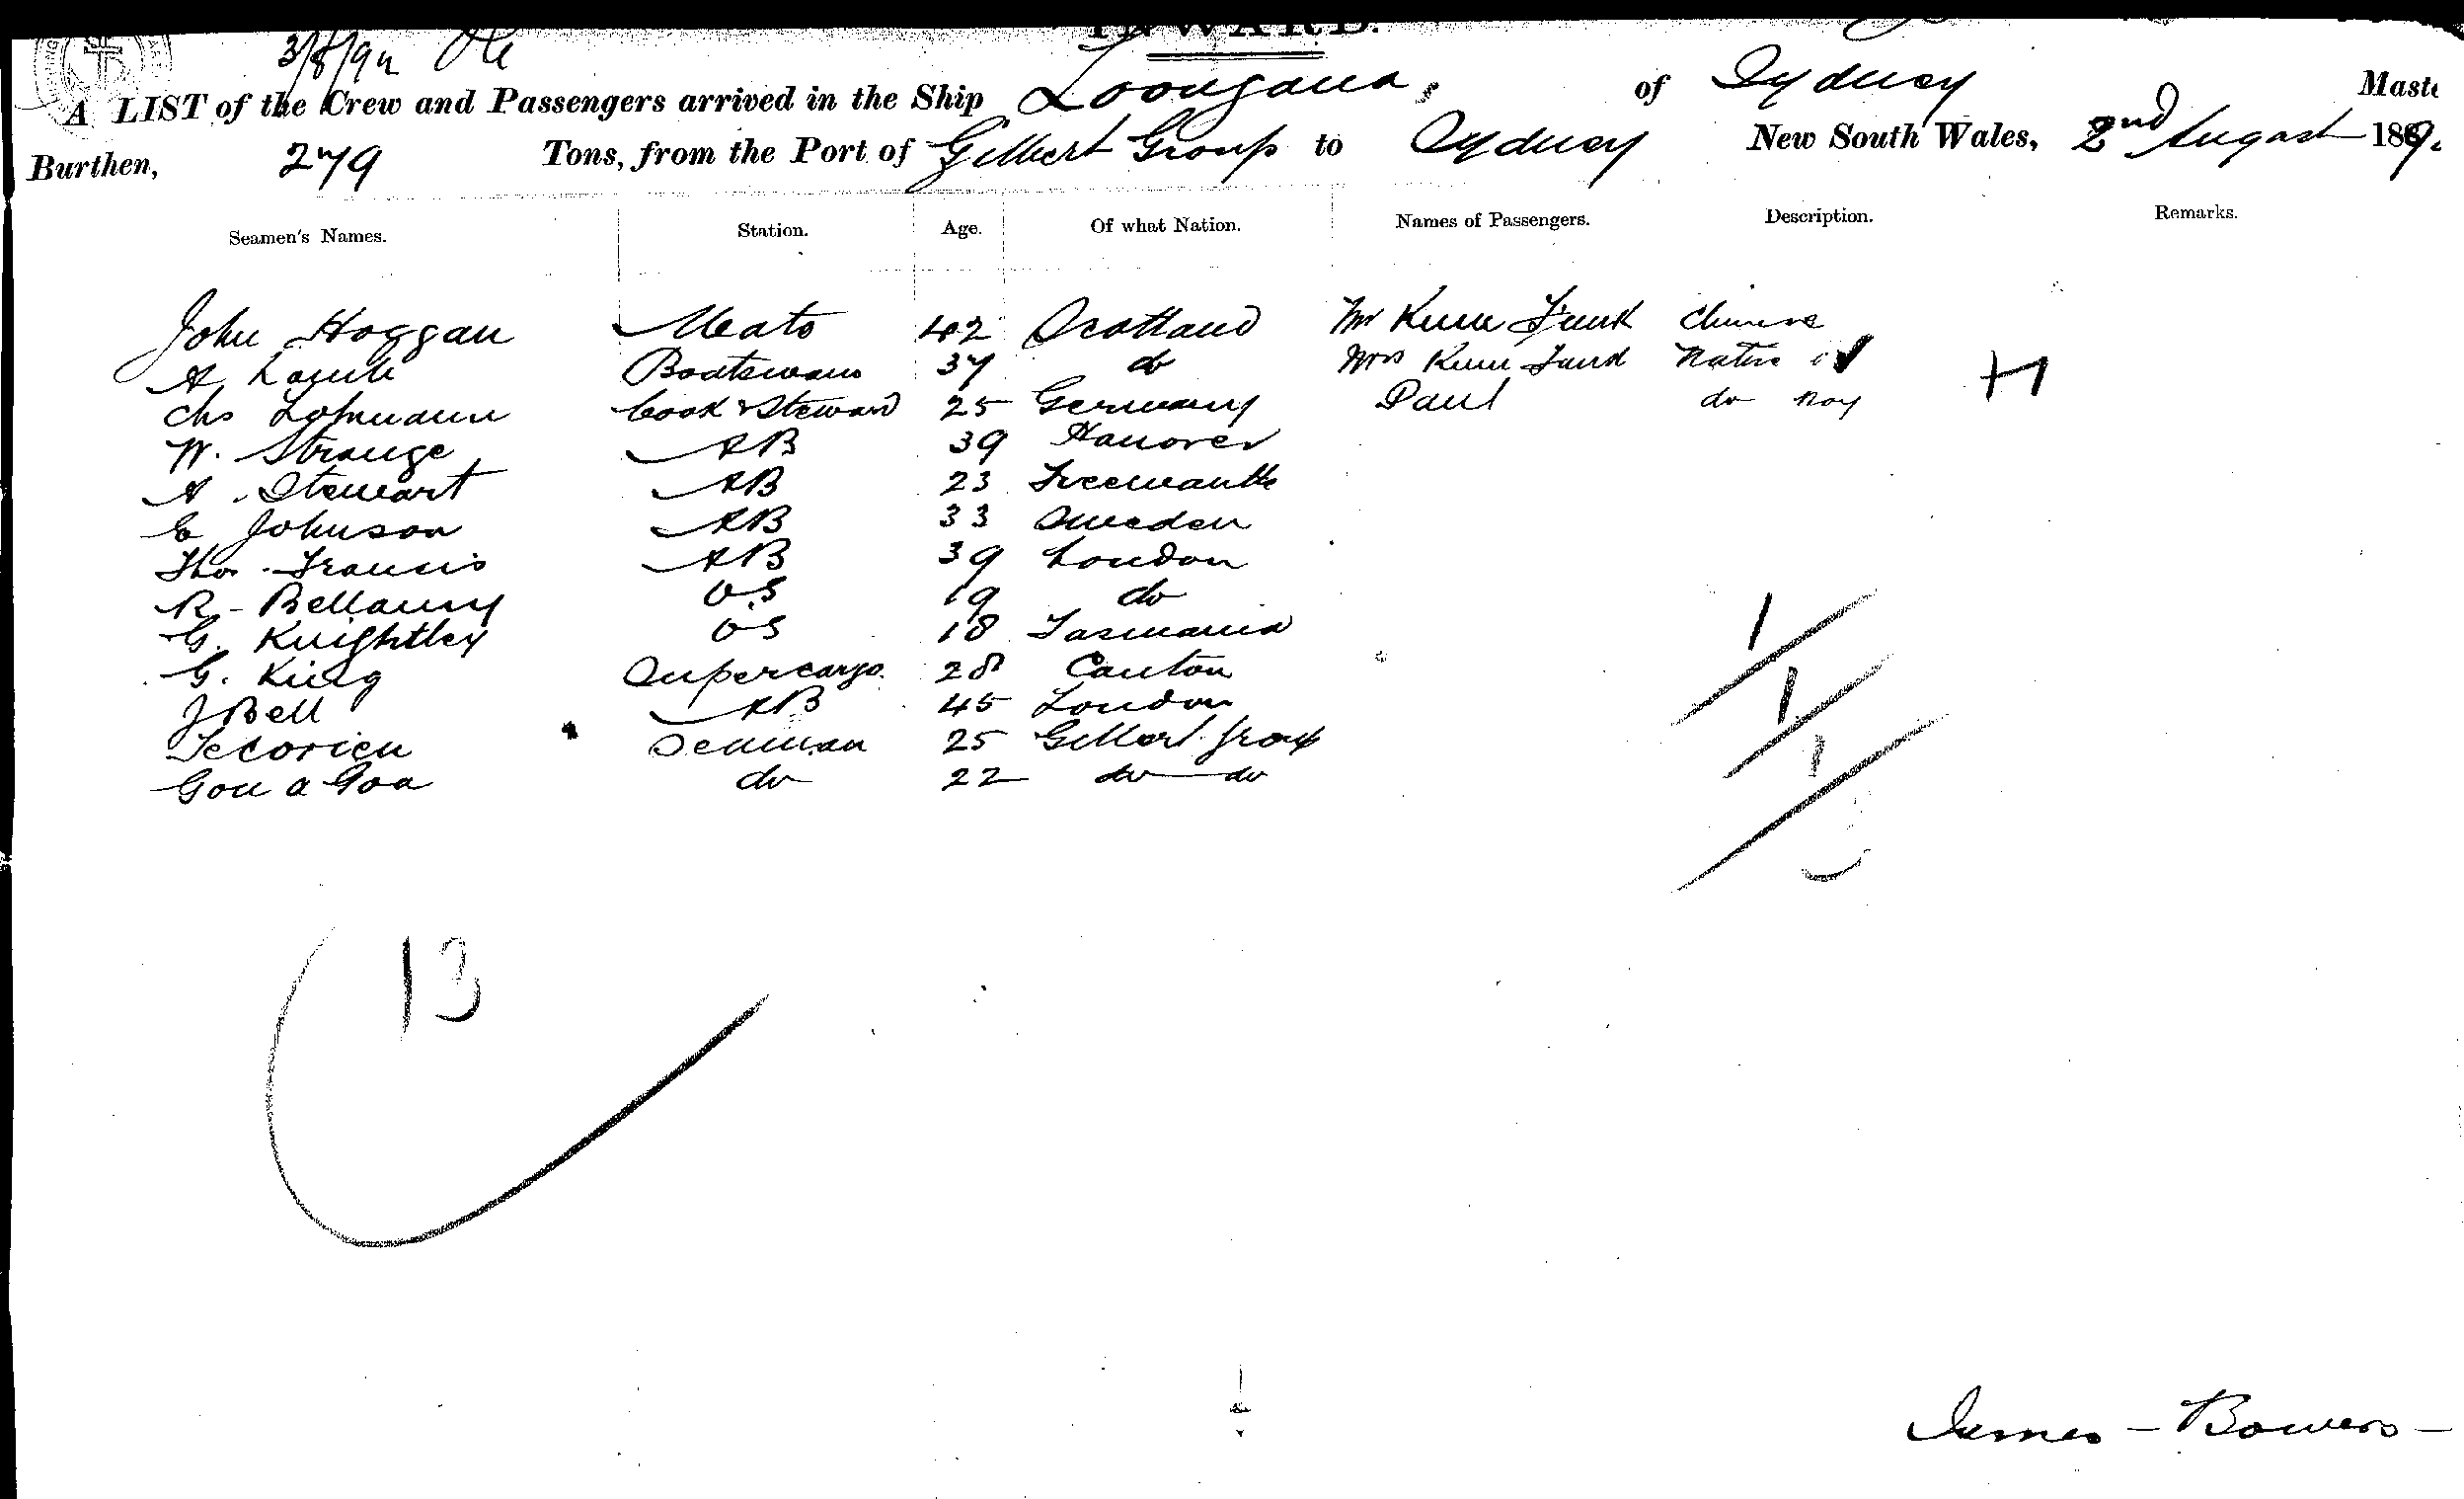 INWARD.
3/8/92
A LIST of the Crew and Passengers arrived in the Ship Loongana, of Sydney Maste
Burthen, 279 Tons, from the Port of Gilbert Group to Sydney New South Wales, 2nd August 189.
Seamen's Names. Station. Age. Of what Nation. Names of Passengers. Description. Remarks.
John Hoggan Mate 42 Scotland Mr Kum Funk Chinese
A Lamb Boatswain 37 do Mrs Kum Funk Native
Chs Lohmann Cook & Steward 25 Germany Paul do Boy
W. Strange AB 39 Hanover
A. Stewart AB 23 Freemantle
C Johnson AB 33 Sweden
Tho. Francis AB 39 London
R. Bellamy O.S 19 do
G. Knightley OS 18 Tasmania
G. King Supercargo. 28 Canton
J Bell AB 45 London
Tecorieu Seaman 25 Gilbert Group
Gou a Goa do 22 do do
1
1
1
13
James - Bowers -